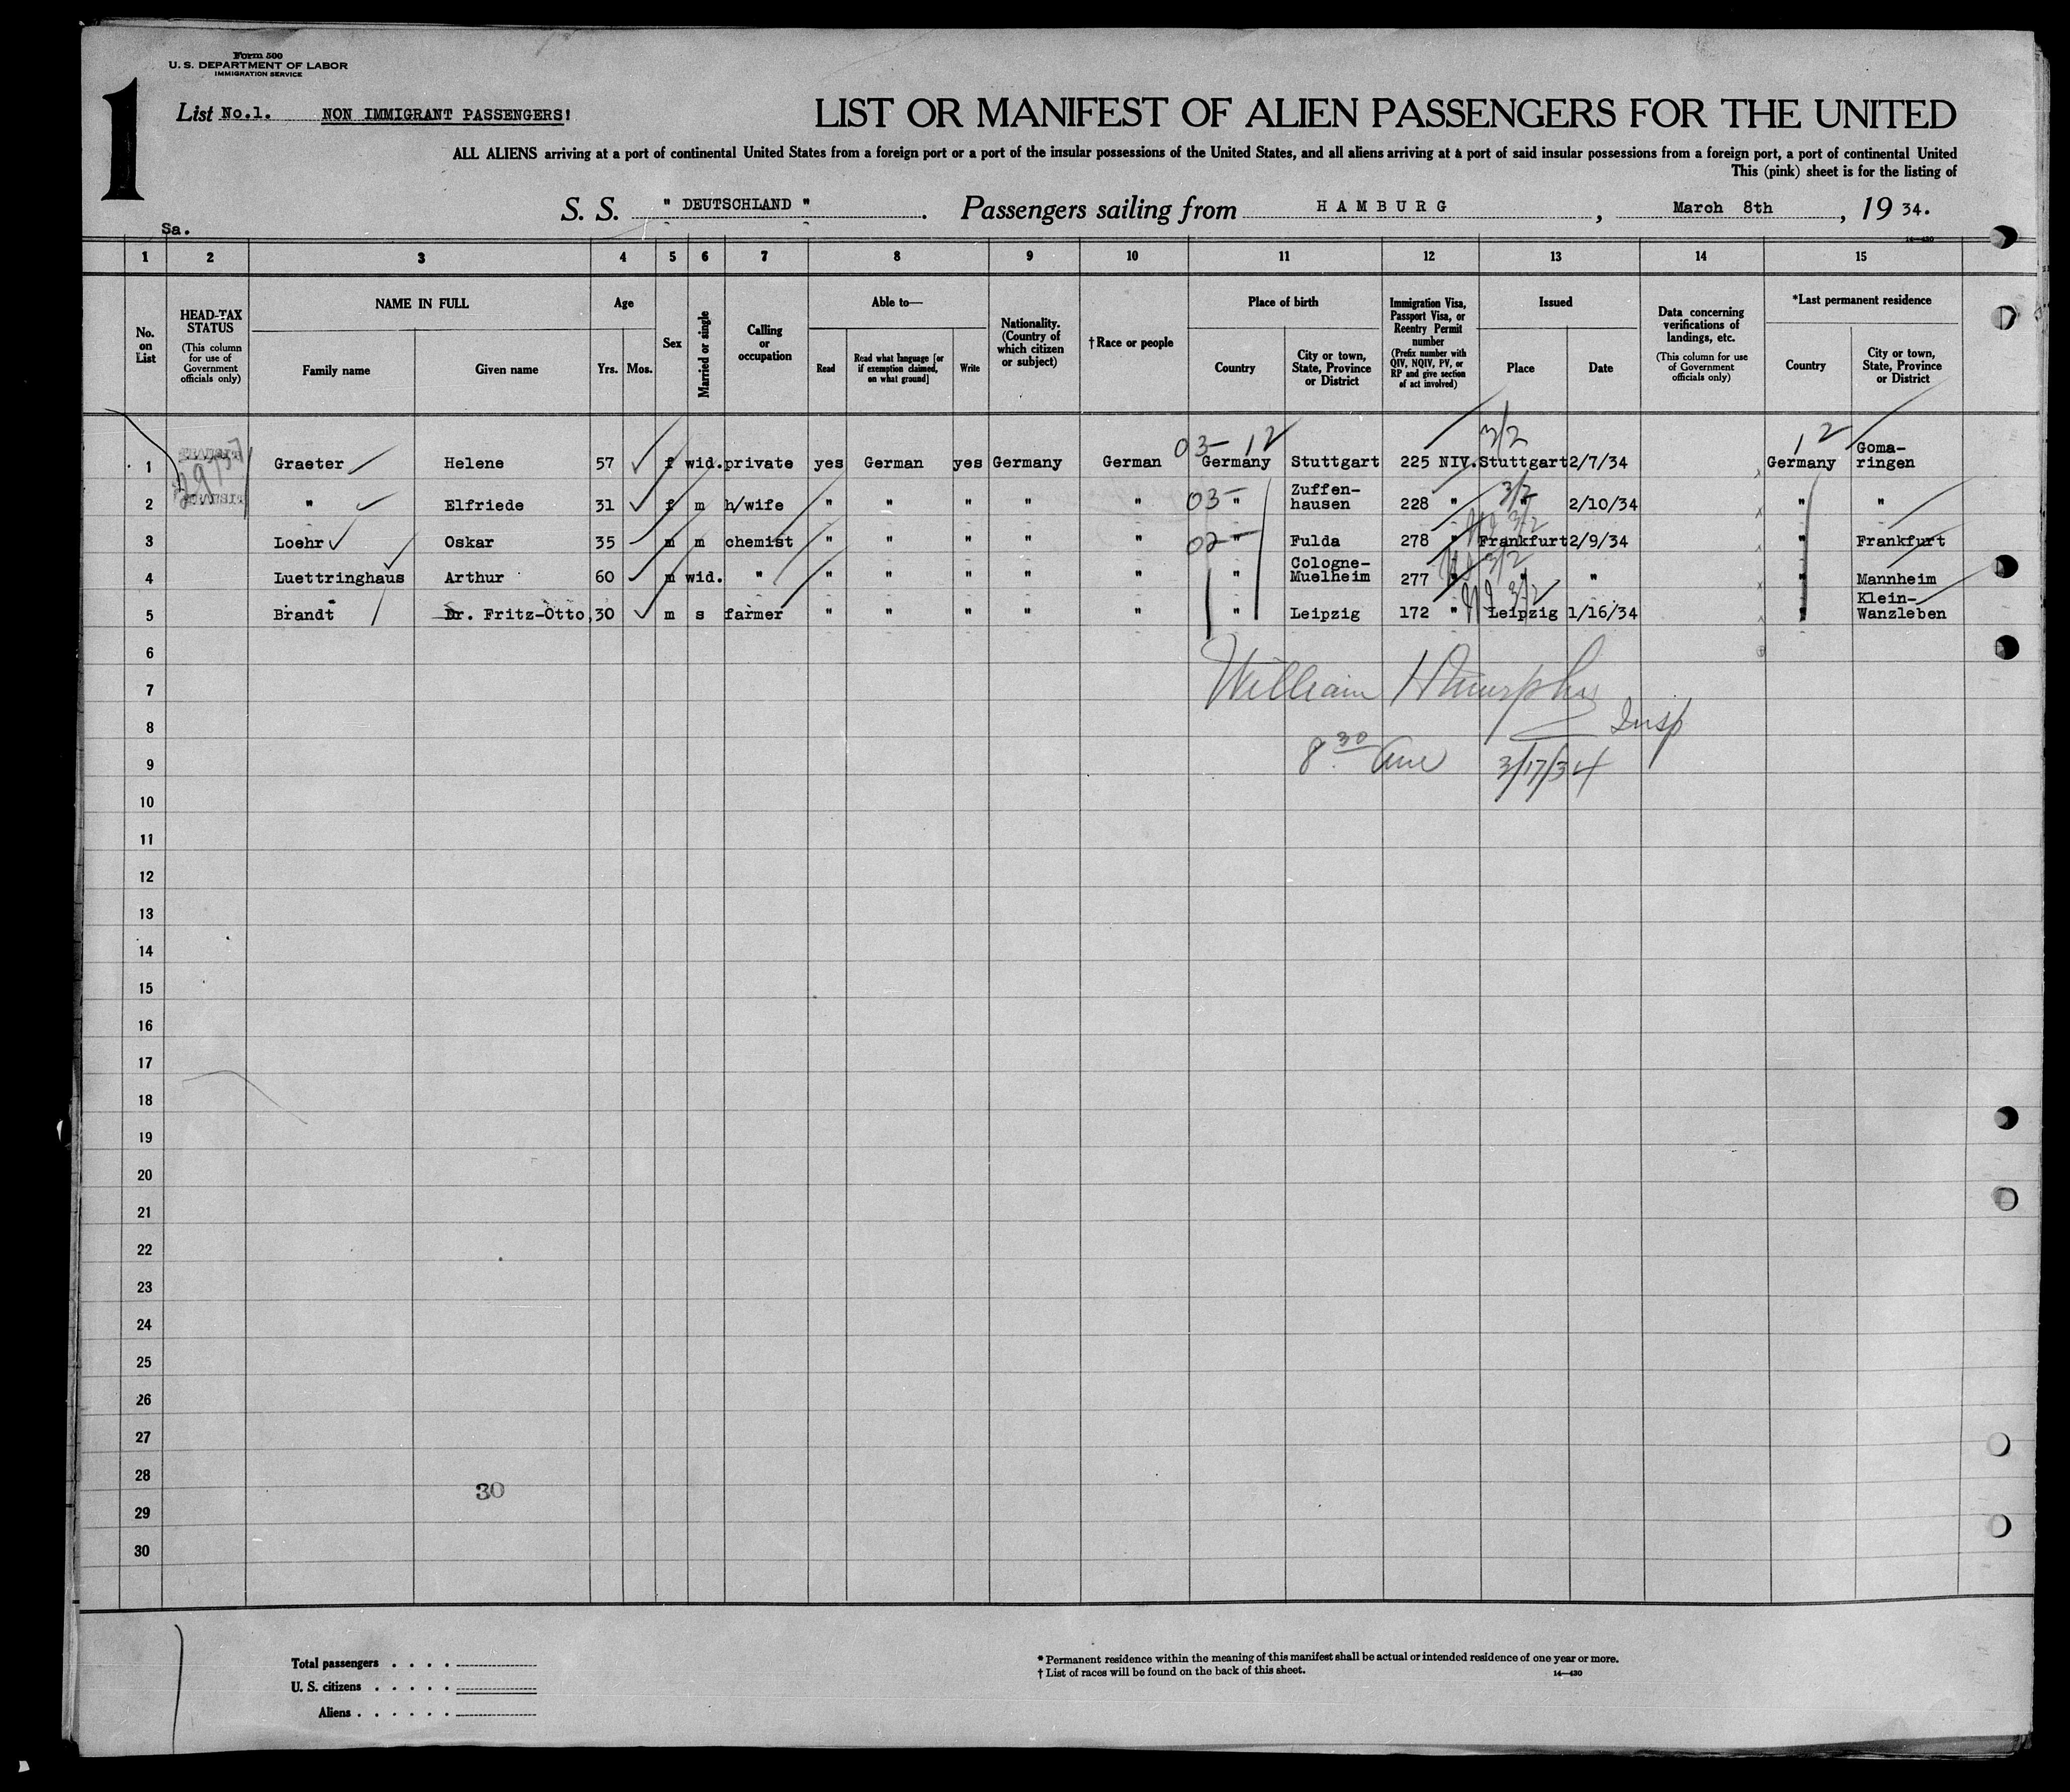 Form 500
U. S. DEPARTMENT OF LABOR
IMMIGRATION SERVICE
1
List No.1. NON IMMIGRANT PASSENGERS!
LIST OR MANIFEST OF ALIEN PASSENGERS FOR THE UNITED
ALL ALIENS arriving at a port of continental United States from a foreign port or a port of the insular possessions of the United States, and all aliens arriving at a port of said insular possessions from a foreign port, a port of continental United
This (pink) sheet is for the listing of
S. S. " DEUTSCHLAND ". Passengers sailing from HAMBURG, March 8th, 19 34.
Sa.
14—430
1 2 3 4 5 6 7 8 9 10 11 12 13 14 15
No. on List
HEAD-TAX STATUS
(This column for use of Government officials only)
NAME IN FULL
Family name
Given name
Age
Yrs.
Mos.
Sex
Married or single
Calling or occupation
Able to—
Read
Read what language [or if exemption claimed, on what ground]
Write
Nationality. (Country of which citizen or subject)
†Race or people
Place of birth
Country
City or town, State, Province or District
Immigration Visa, Passport Visa, or Reentry Permit number
(Prefix number with QIV, NQIV, PV, or RP and give section of act involved)
Issued
Place
Date
Data concerning verifications of landings, etc.
(This column for use of Government officials only)
*Last permanent residence
Country
City or town, State, Province or District
03- 12 3/2 12
1 Graeter Helene 57 f wid. private yes German yes Germany German Germany Stuttgart 225 NIV. Stuttgart 2/7/34 Germany Goma-ringen
2 " Elfriede 31 f m h/wife " " " " " 03- " Zuffen-hausen 228 " 3/2 " 2/10/34 " "
3 Loehr Oskar 35 m m chemist " " " " " 02- " Fulda 278 " 3/2 Frankfurt 2/9/34 " Frankfurt
4 Luettringhaus Arthur 60 m wid. " " " " " " " Cologne-Muelheim 277 " 3/2 " " " Mannheim
5 Brandt Dr. Fritz-Otto, 30 m s farmer " " " " " " Leipzig 172 " 3/2 Leipzig 1/16/34 " Klein-Wanzleben
6
7 William H Murphy
8 Insp
9 8 30 am 3/17/34
10
11
12
13
14
15
16
17
18
19
20
21
22
23
24
25
26
27
28
30
29
30
Total passengers . . . .
U. S. citizens . . . . .
Aliens . . . . . .
* Permanent residence within the meaning of this manifest shall be actual or intended residence of one year or more.
† List of races will be found on the back of this sheet.
14—430